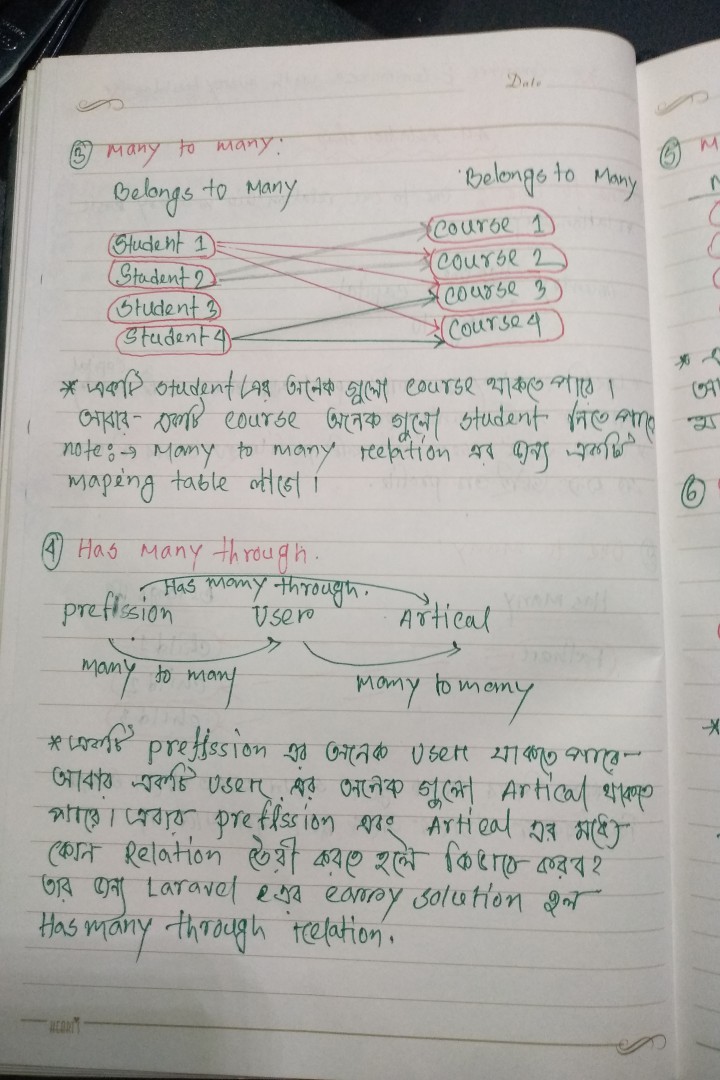 Date
③ Many to many:
Belongs to Many Belongs to Many
Student 1 Course 1
Student 2 Course 2
Student 3 Course 3
Student 4 Course 4
* একটি student এর অনেক গুলো course থাকতে পারে ।
আবার - একটি course অনেক গুলো student নিতে পারে
note: → Many to many relation এর জন্য একটি
mapeing table লাগে ।
④ Has Many through.
Has many through.
preffssion User Artical
many to many many to many
* একটি preffssion এর অনেক User থাকতে পারে -
আবার একটি User এর অনেক গুলো Artical থাকতে
পারে । এবার preffssion এবং Artical এর মধ্যে
কোন Relation তৈরী করতে হলে কিভাবে করব ?
তার জন্য Laravel এর solution হল
Has many through relation.
⑤ M
⑥